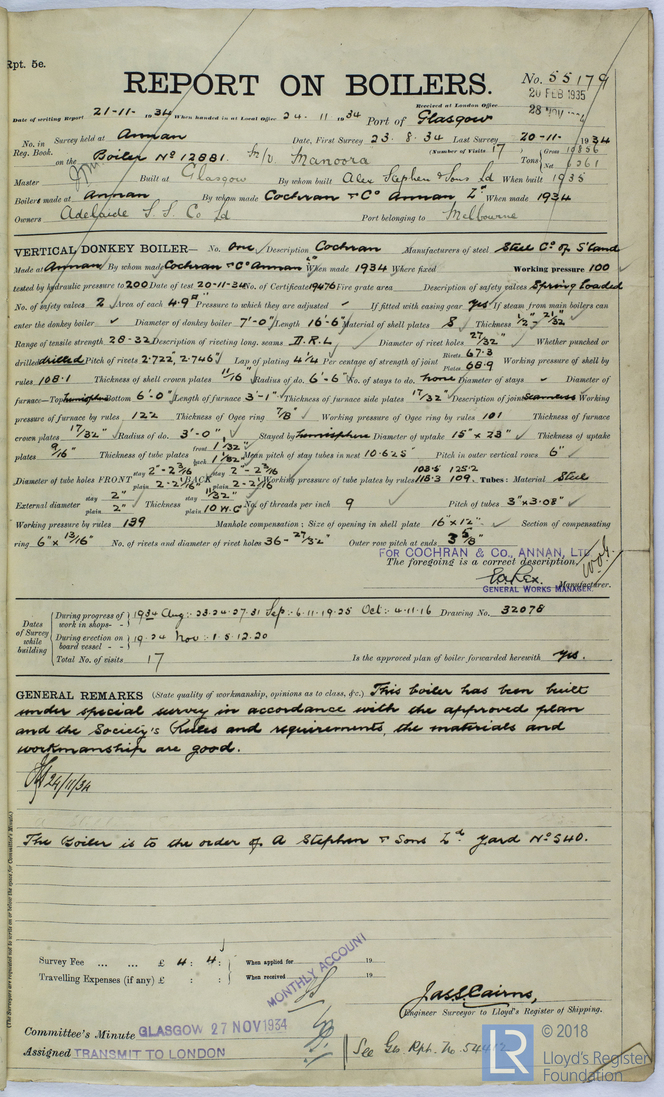 Rpt. 5e.
REPORT ON BOILERS.
No. 55179
20 FEB 1935
Received at London Office
28 NOV
Date of writing Report 21-11-1934 When handed in at Local Office 24.11.1934 Port of Glasgow
No. in Survey held at Annan Date, First Survey 23.8.34 Last Survey 20-11-1934
Reg. Book. (Number of Visits 17)
on the Boiler No 12881. M/V Manoora Tons Gross 10856 Net 6361
Master Built at Glasgow By whom built Alex Stephen & Sons Ld When built 1935
Boilers made at Annan By whom made Cochran & Co Annan Ld When made 1934
Owners Adelaide S.S. Co Ld Port belonging to Melbourne
VERTICAL DONKEY BOILER— No. One Description Cochran Manufacturers of steel Steel Co of S'land
Made at Annan By whom made Cochran & Co Annan Ld When made 1934 Where fixed Working pressure 100
tested by hydraulic pressure to 200 Date of test 20-11-34 No. of Certificate 19476 Fire grate area Description of safety valves Spring Loaded
No. of safety valves 2 Area of each 4.9" Pressure to which they are adjusted If fitted with easing gear yes If steam from main boilers can
enter the donkey boiler Diameter of donkey boiler 7'-0" Length 16'-6" Material of shell plates S Thickness 1/2" - 21/32"
Range of tensile strength 28-32 Description of riveting long. seams D.R.L. Diameter of rivet holes 27/32" Whether punched or
drilled drilled Pitch of rivets 2.722" 2.746" Lap of plating 4 1/4 Per centage of strength of joint Rivets 67.3 Plates 68.9 Working pressure of shell by
rules 108.1 Thickness of shell crown plates 11/16" Radius of do. 6'-6" No. of stays to do. none Diameter of stays Diameter of
furnace—Top hemisph Bottom 6'-0" Length of furnace 3'-1" Thickness of furnace side plates 17/32" Description of joint Seamless Working
pressure of furnace by rules 122 Thickness of Ogee ring 7/8" Working pressure of Ogee ring by rules 101 Thickness of furnace
crown plates 17/32" Radius of do. 3'-0" Stayed by hemisphere Diameter of uptake 15" x 23" Thickness of uptake
plates 9/16" Thickness of tube plates front 1 1/32" back 1 1/32" Mean pitch of stay tubes in nest 10.625 Pitch in outer vertical rows 6"
Diameter of tube holes FRONT stay 2"-2 3/16 plain 2-2 1/16" BACK stay 2"-2 3/16 plain 2-2 1/16 Working pressure of tube plates by rules 103.5 125.2 118.3 109. Tubes: Material Steel
External diameter stay 2" plain 2" Thickness stay 11/32" plain 10 W.G No. of threads per inch 9 Pitch of tubes 3" x 3.08"
Working pressure by rules 139 Manhole compensation: Size of opening in shell plate 16" x 12" Section of compensating
ring 6" x 13/16" No. of rivets and diameter of rivet holes 36 - 27/32" Outer row pitch at ends 3 5/8"
FOR COCHRAN & Co., ANNAN, LTD
The foregoing is a correct description,
Manufacturer.
GENERAL WORKS MANAGER.
Dates of Survey while building
During progress of work in shops- - 1934 Aug:- 23.24.27.31 Sep:- 6.11.19.25 Oct:- 4.11.16 Drawing No. 32078
During erection on board vessel - - 1934 Nov:- 1.5.12.20
Total No. of visits 17 Is the approved plan of boiler forwarded herewith yes.
GENERAL REMARKS (State quality of workmanship, opinions as to class, &c.) This boiler has been built
under special survey in accordance with the approved plan
and the Society's Rules and requirements, the materials and
workmanship are good.
24/11/34
The Boiler is to the order of A Stephen & Sons Ld Yard No 540.
(The Surveyors are requested not to write on or below the space for Committee's Minute.)
Survey Fee ... ... £ 4 : 4 : When applied for 19
Travelling Expenses (if any) £ : : When received 19
MONTHLY ACCOUNT
Jas S Cairns,
Engineer Surveyor to Lloyd's Register of Shipping.
Committee's Minute GLASGOW 27 NOV 1934
Assigned TRANSMIT TO LONDON
See Gls. Rpt. No.
LR
© 2018
Lloyd's Register
Foundation